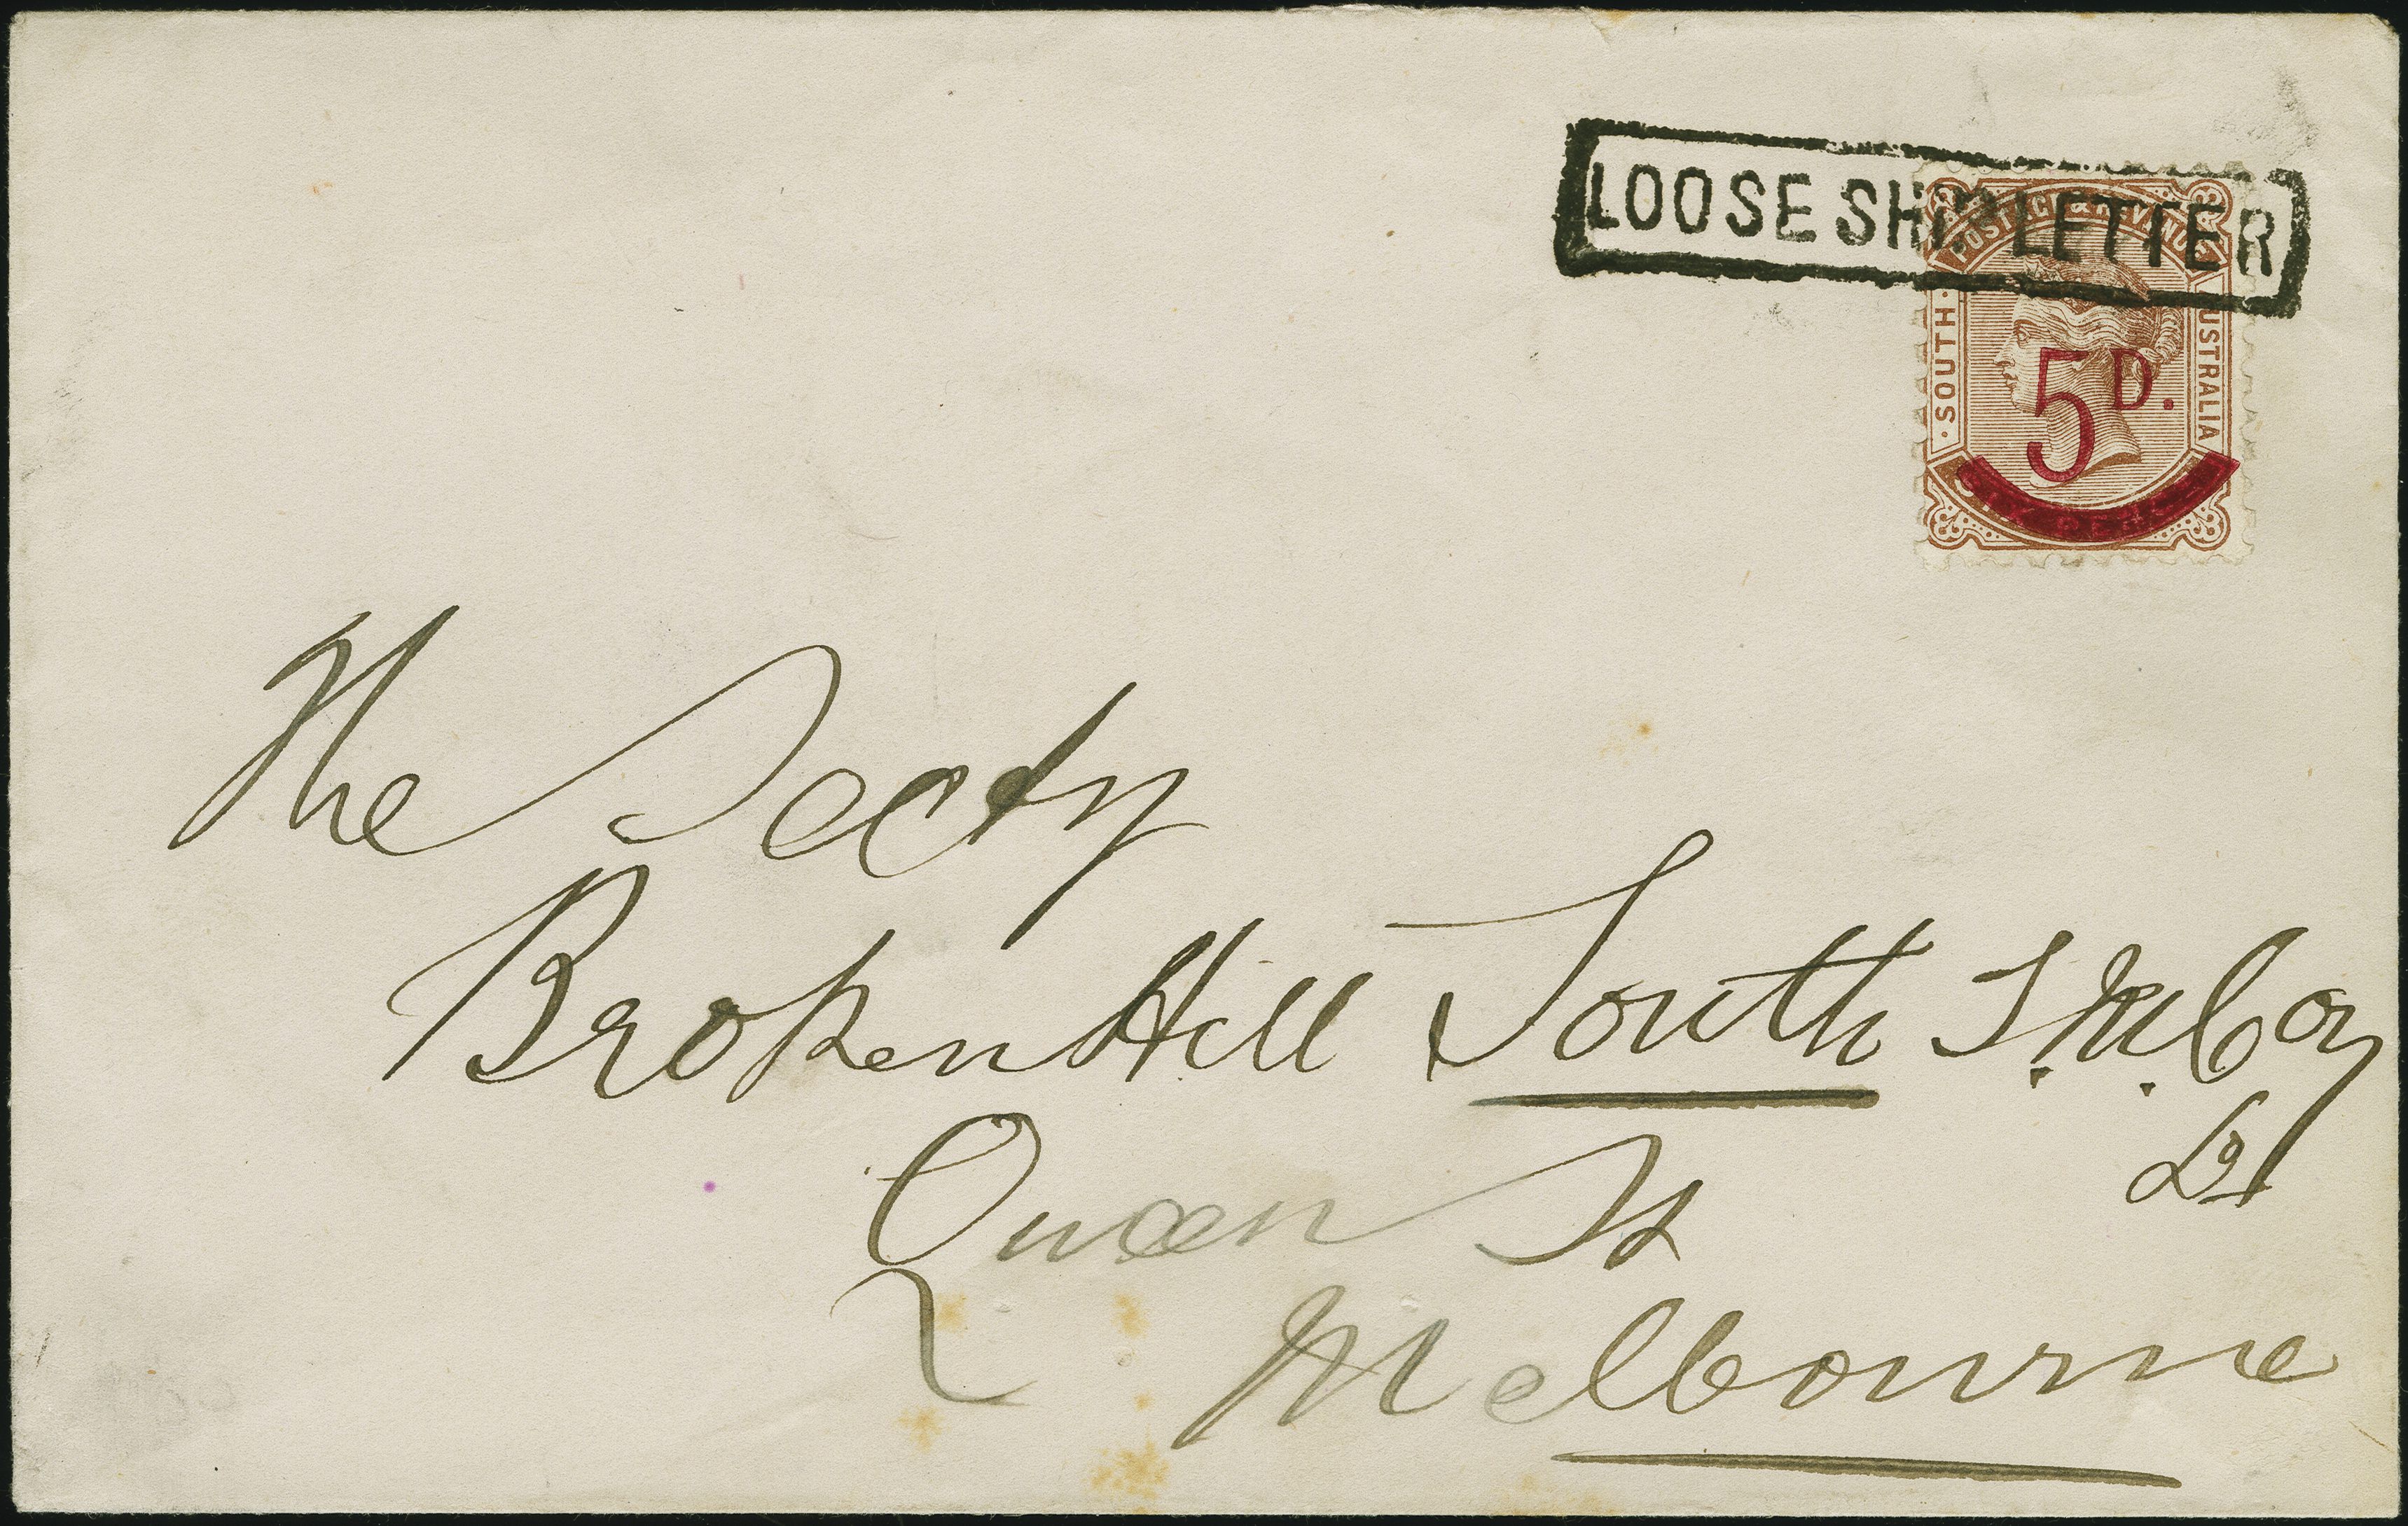 LOOSE SHIP LETTER
POSTAGE & REVENUE
SOUTH
AUSTRALIA
5D.
The Secty
Broken Hill South S. M. Coy
Ld
Queen St
Melbourne